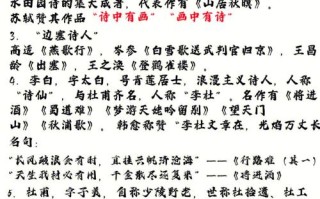 水田园诗的集大成者，代表作有《山居秋暝》。
苏轼赞其作品“诗中有画”“画中有诗”
3、“边塞诗人”
高适《燕歌行》，岑参《白雪歌送武判官归京》，王昌
龄《出塞》，王之涣《登鹳雀楼》。
4、李白，字太白，号青莲居士，浪漫主义诗人，人称
“诗仙”，与杜甫齐名，人称“李杜”，名作有《将进
酒》《蜀道难》《梦游天姥吟留别》《望天门
山》《秋浦歌》，韩愈称赞“李杜文章在，光焰万丈长
名句：
“长风破浪会有时，直挂云帆济沧海”——《行路难（其一）
“天生我材必有用，千金散尽还复来”——《将进酒》
5、杜甫，字子美，自称少陵野老，世称杜拾遗、杜工